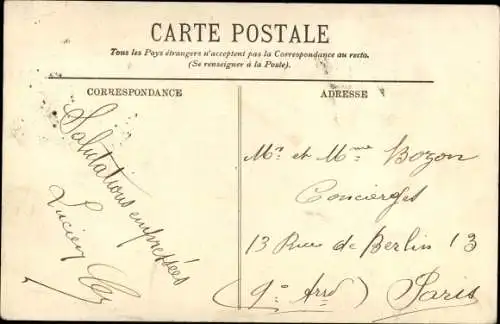 CARTE POSTALE
Tous les Pays étrangers n'acceptent pas la Correspondance au recto.
(Se renseigner à la Poste).
CORRESPONDANCE
ADRESSE
Salutations empressées
Lucien
Mr et Mme Bozon
Concierges
13 Rue de Berlin 13
(9e Arrd) Paris